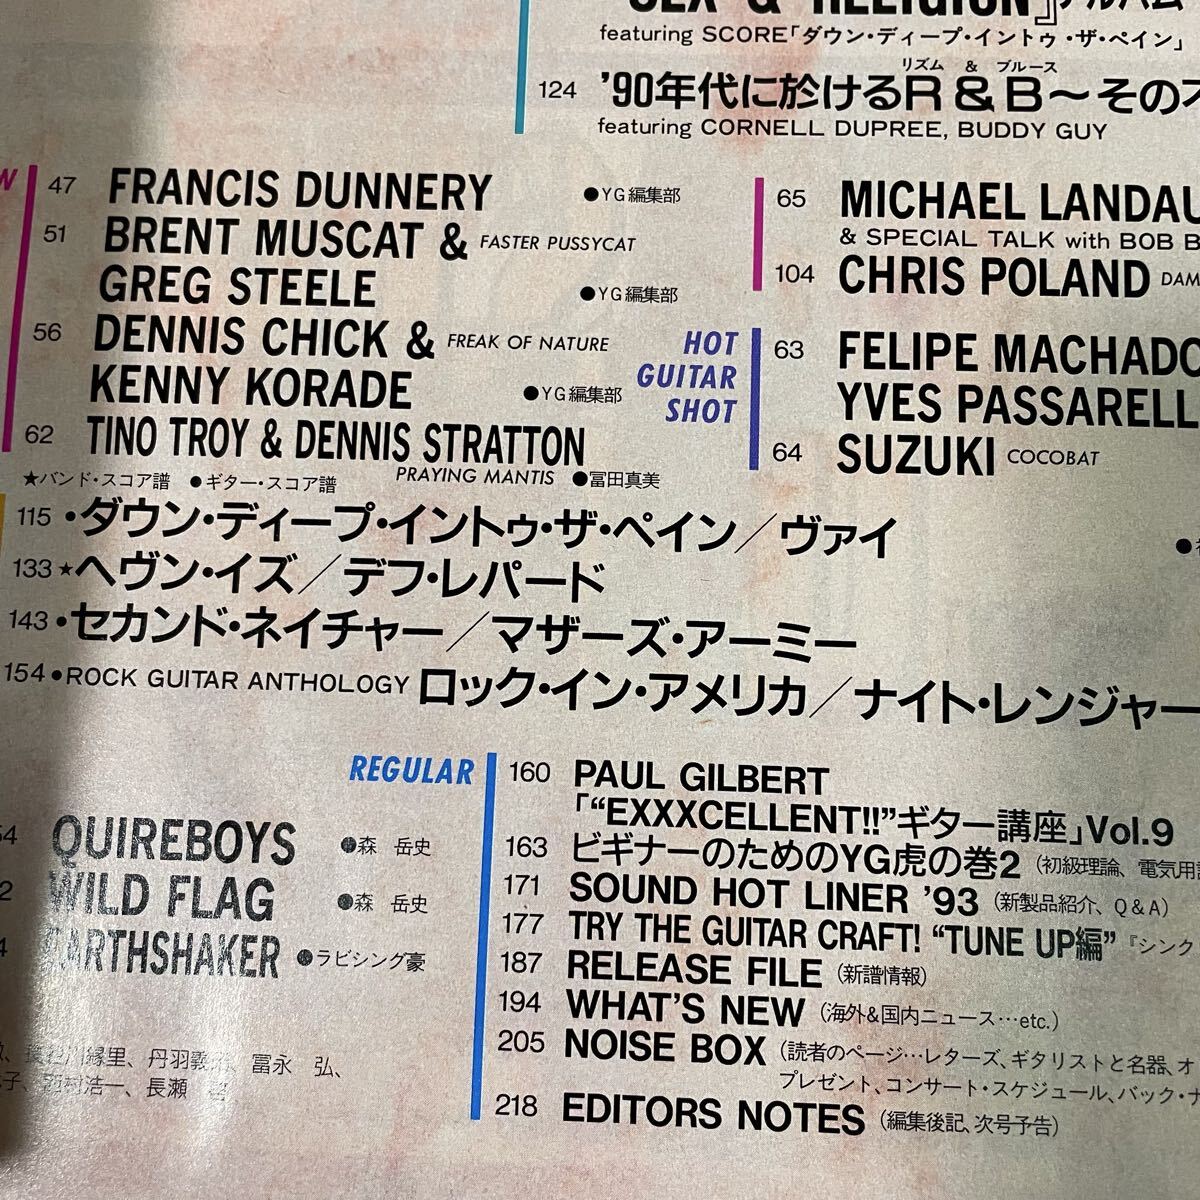 SEX & RELIGION』アルバム
featuring SCORE「ダウン・ディープ・イントゥ・ザ・ペイン」
リズム & ブルース
124 '90年代に於けるR&B〜その
featuring CORNELL DUPREE, BUDDY GUY
47 FRANCIS DUNNERY ●YG編集部
51 BRENT MUSCAT & FASTER PUSSYCAT
GREG STEELE ●YG編集部
56 DENNIS CHICK & FREAK OF NATURE
KENNY KORADE ●YG編集部
62 TINO TROY & DENNIS STRATTON
PRAYING MANTIS ●冨田真美
65 MICHAEL LANDAU
& SPECIAL TALK with BOB B
104 CHRIS POLAND DAM
HOT
GUITAR
SHOT
63 FELIPE MACHADO
YVES PASSARELL
64 SUZUKI COCOBAT
★バンド・スコア譜 ●ギター・スコア譜
115 ・ダウン・ディープ・イントゥ・ザ・ペイン/ヴァイ
133 ★ヘヴン・イズ/デフ・レパード
143 ・セカンド・ネイチャー/マザーズ・アーミー
154 ●ROCK GUITAR ANTHOLOGY ロック・イン・アメリカ/ナイト・レンジャー
QUIREBOYS ●森 岳史
WILD FLAG ●森 岳史
EARTHSHAKER ●ラビシング豪
緑里、丹羽 冨永 弘、
村浩一、長瀬
REGULAR
160 PAUL GILBERT
「“EXXXCELLENT!!”ギター講座」Vol.9
163 ビギナーのためのYG虎の巻2 (初級理論、電気用
171 SOUND HOT LINER '93 (新製品紹介、Q&A)
177 TRY THE GUITAR CRAFT! “TUNE UP編” 『シンク
187 RELEASE FILE (新譜情報)
194 WHAT'S NEW (海外&国内ニュース…etc.)
205 NOISE BOX (読者のページ…レターズ、ギタリストと名器、オ
プレゼント、コンサート・スケジュール、バック・ナ
218 EDITORS NOTES (編集後記、次号予告)